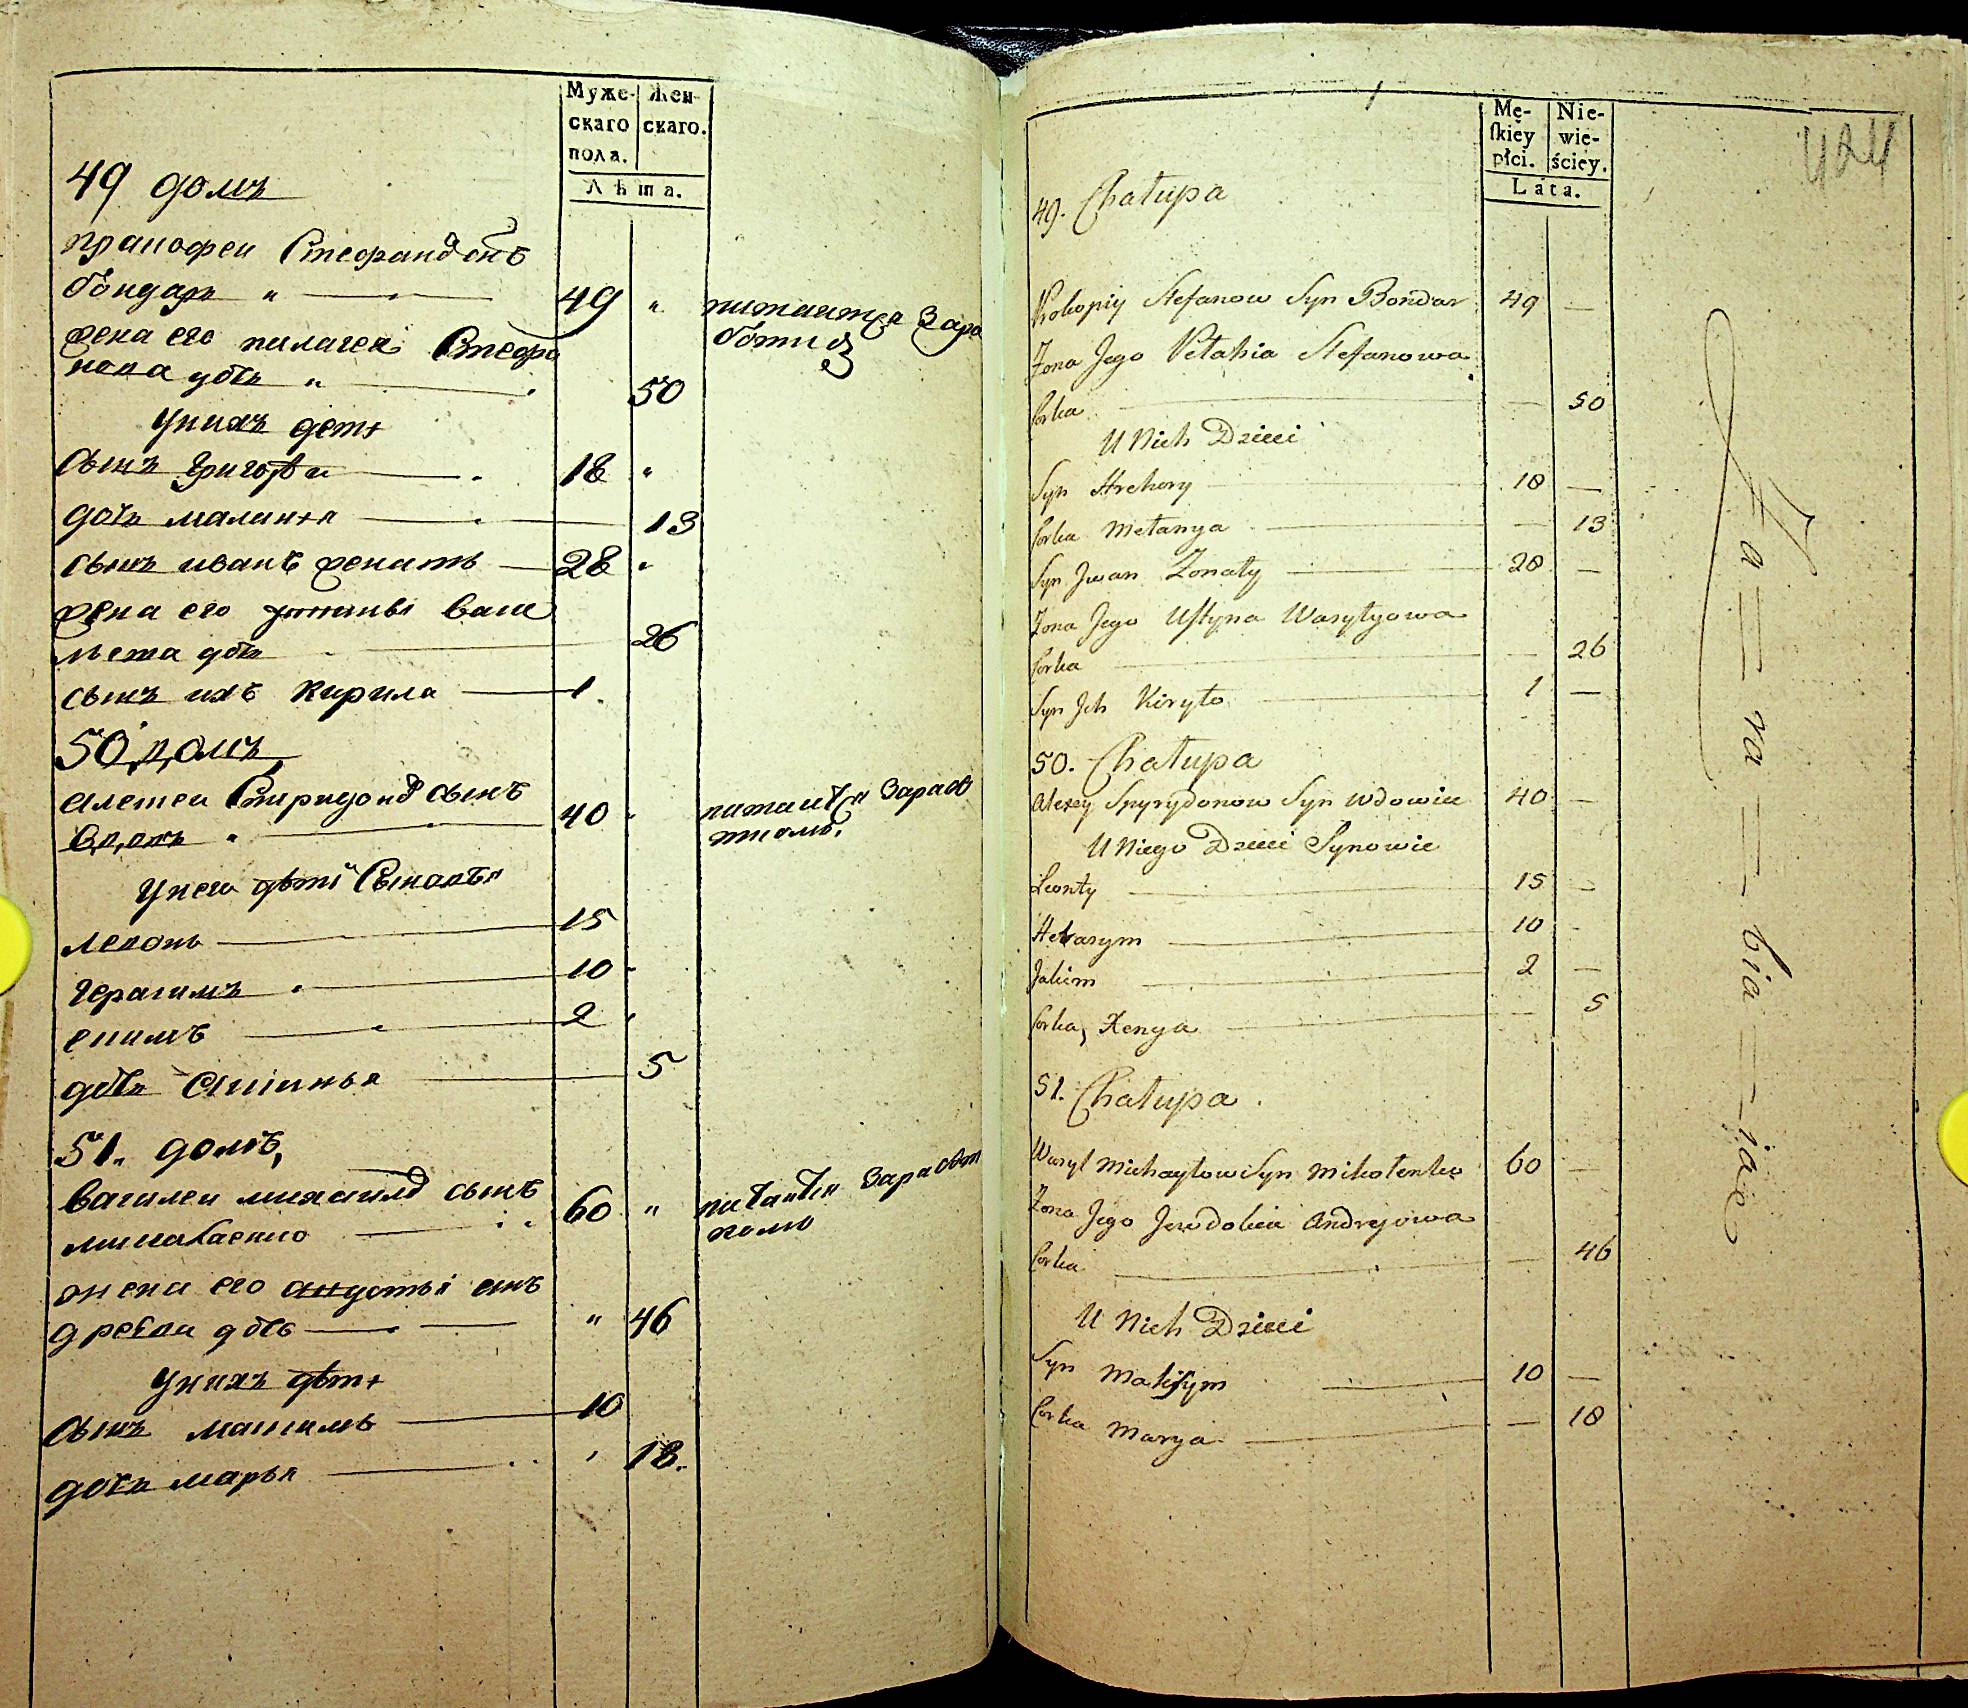 Муже-
скаго
пола.
Жен-
скаго.
Лѣта.
49 домъ
прокофеи Стефановъ
бондарь " 49 "
питаитца Зара
ботио
жена его пилагея Стефа
нова дочь " 50
Унихъ дети
сынъ Григореи 18 "
дочь маланія 13
сынъ иванъ женатъ 28 "
жена его устинья васи
льева дочь 26
сынъ ихъ кирила 1
50 домъ
алексеи Спиридоновъ сынъ
вдовъ " 40
питаитца Зарабо
ткомъ.
Унего дѣти Сыновья
левонъ 15
герасимъ 10
екимъ 2
дочь Аксинья 5
51. домъ,
василеи михаиловъ сынъ
миколаенко 60 "
питаитца Заработ
комъ
жена его авдотья ан
дреева дочь " 46
Унихъ дѣти
сынъ максимъ 10
дочь марья 18.
Mę-
skiey
płci.
Nie-
wie-
ściey.
Lata.
424
49. Chałupa
Prokopiy Stefanow Syn Bondar 49 —
Żona Jego Pełahia Stefanowa
Corka — 50
U Nich Dzieci
Syn Hrehory 18 —
Corka Mełanya — 13
Syn Jwan Żonaty 28 —
Żona Jego Ustyna Wasylyowa
Corka — 26
Syn Jch Kiryło 1 —
50. Chałupa
Alexey Spyrydonow Syn Wdowiec 40 —
U Niego Dzieci Synowie
Leonty 15 —
Herasym 10 -
Jakim 2 —
Corka, Xenya — 5
51. Chałupa.
Wasyl Michayłow Syn Mikołenko 60 —
Żona Jego Jewdokia Andrejowa
Corka — 46
U Nich Dzieci
Syn Maksym 10 —
Corka Marya — 18
Za = ra = bia = ią